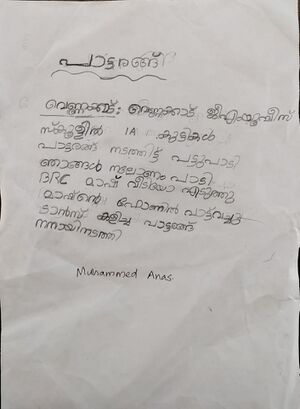 പാട്ടരങ്ങ്
വെണ്ണക്കോട്: വെണ്ണക്കാട് ജിഎംയുപീസ്
സ്കൂളിൽ 1A കുട്ടികൾ
പാട്ടരങ്ങ് നടത്തിട്ട് പട്ടുപാടി
ഞങ്ങൾ നല്ലോണം പാടി
BRC മാഷ് വീഡിയോ എടുത്തു
മാഷിന്റെ ഫോണിൽ പാട്ട് വച്ചു
ഡാൻസ് കളിച്ചു പാട്ടരങ്ങ്
നന്നായിനടത്തി
Muhammed Anas